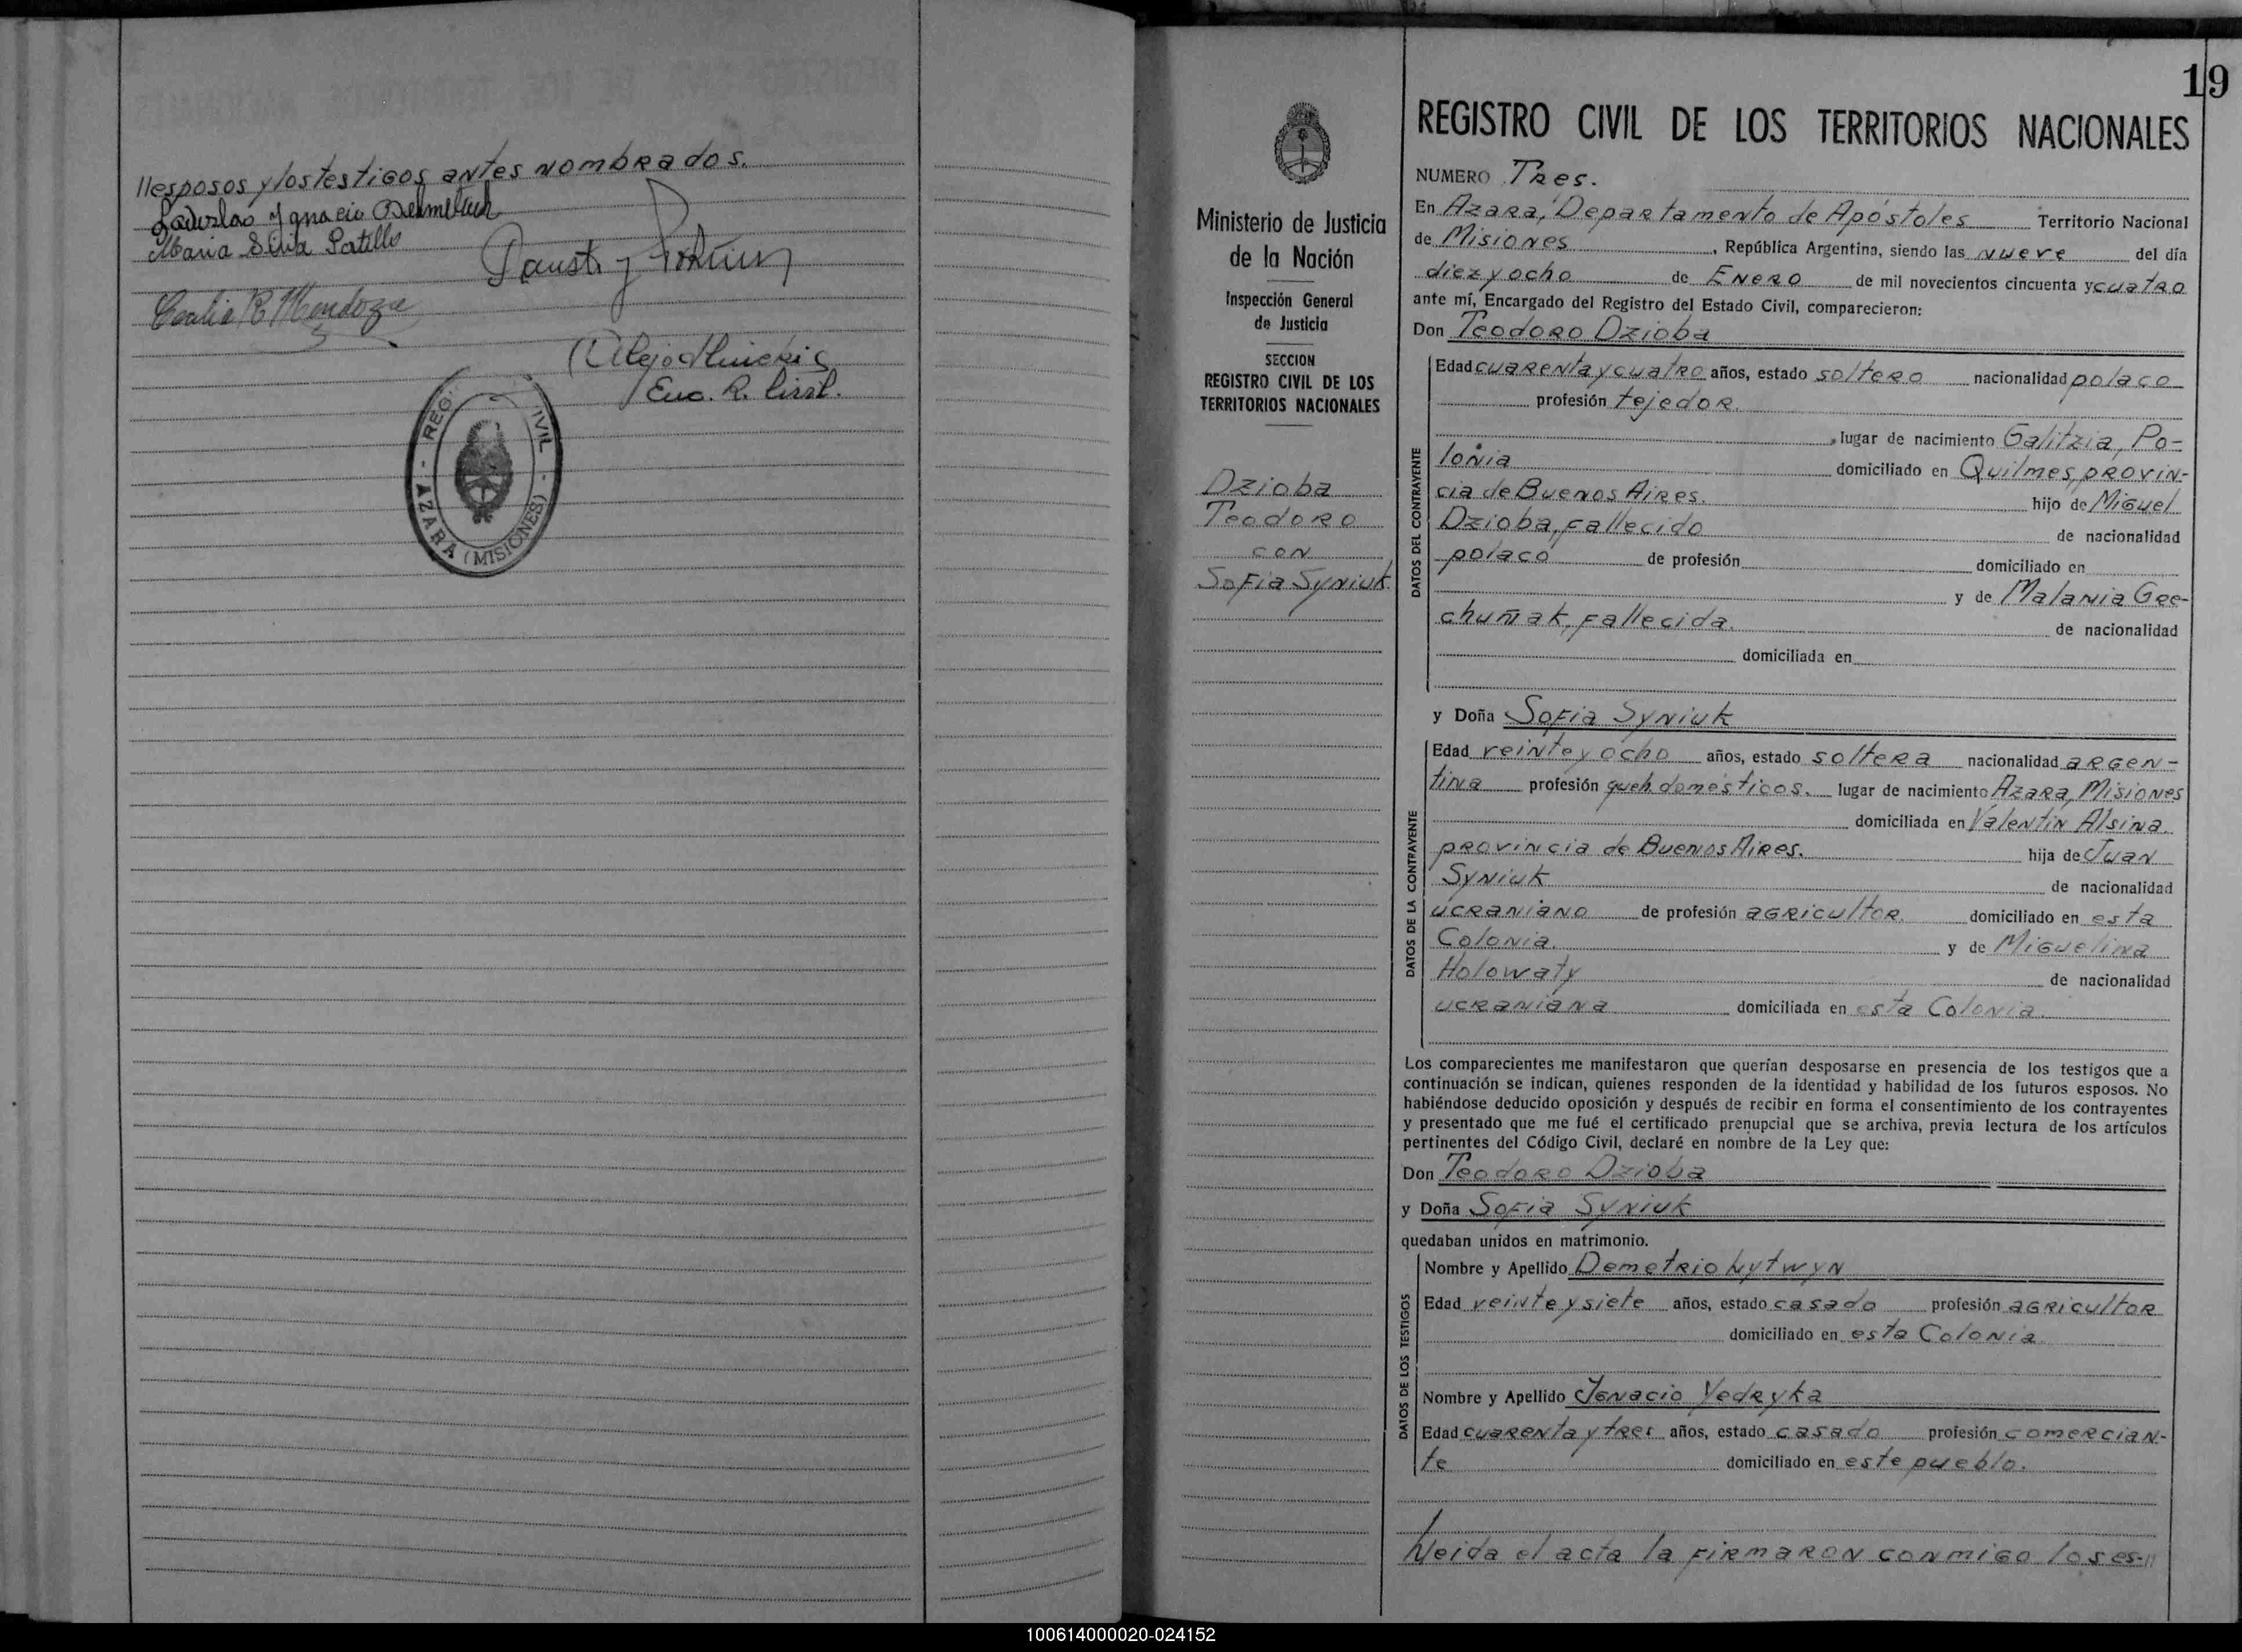 //esposos y los testigos antes nombrados.
Ladislao Ignacio
Maria
Mendoza
Enc. R. Civil.
REG. IVIL
AZARA (MISIONES)
19
Ministerio de Justicia
de la Nación
Inspección General
de Justicia
SECCION
REGISTRO CIVIL DE LOS
TERRITORIOS NACIONALES
Dzioba
Teodoro
con
Sofia Syniuk
REGISTRO CIVIL DE LOS TERRITORIOS NACIONALES
NUMERO Tres.
En Azara, Departamento de Apóstoles Territorio Nacional
de Misiones, República Argentina, siendo las nueve del día
diez y ocho de Enero de mil novecientos cincuenta y cuatro
ante mí, Encargado del Registro del Estado Civil, comparecieron:
Don Teodoro Dzioba
DATOS DEL CONTRAYENTE
Edad cuarenta y cuatro años, estado soltero nacionalidad polaco
profesión tejedor.
, lugar de nacimiento Galitzia, Po-
lonia domiciliado en Quilmes, provin-
cia de Buenos Aires. hijo de Miguel
Dzioba, fallecido de nacionalidad
polaco de profesión domiciliado en
y de Malania Gre-
chuñak, fallecida. de nacionalidad
domiciliada en
y Doña Sofia Syniuk
DATOS DE LA CONTRAYENTE
Edad veinte y ocho años, estado soltera nacionalidad argen-
tina profesión queh. domésticos. lugar de nacimiento Azara, Misiones
domiciliada en Valentin Alsina.
provincia de Buenos Aires. hija de Juan
Syniuk de nacionalidad
ucraniano de profesión agricultor. domiciliado en esta
Colonia. y de Miguelina
Holowaty de nacionalidad
ucraniana domiciliada en esta Colonia.
Los comparecientes me manifestaron que querían desposarse en presencia de los testigos que a
continuación se indican, quienes responden de la identidad y habilidad de los futuros esposos. No
habiéndose deducido oposición y después de recibir en forma el consentimiento de los contrayentes
y presentado que me fué el certificado prenupcial que se archiva, previa lectura de los artículos
pertinentes del Código Civil, declaré en nombre de la Ley que:
Don Teodoro Dzioba
y Doña Sofia Syniuk
quedaban unidos en matrimonio.
DATOS DE LOS TESTIGOS
Nombre y Apellido Demetrio Lytwyn
Edad veinte y siete años, estado casado profesión agricultor
domiciliado en esta Colonia.
Nombre y Apellido Ignacio Yedryka
Edad cuarenta y tres años, estado casado profesión comercian-
te domiciliado en este pueblo.
Leida el acta la firmaron conmigo los es-//
100614000020-024152